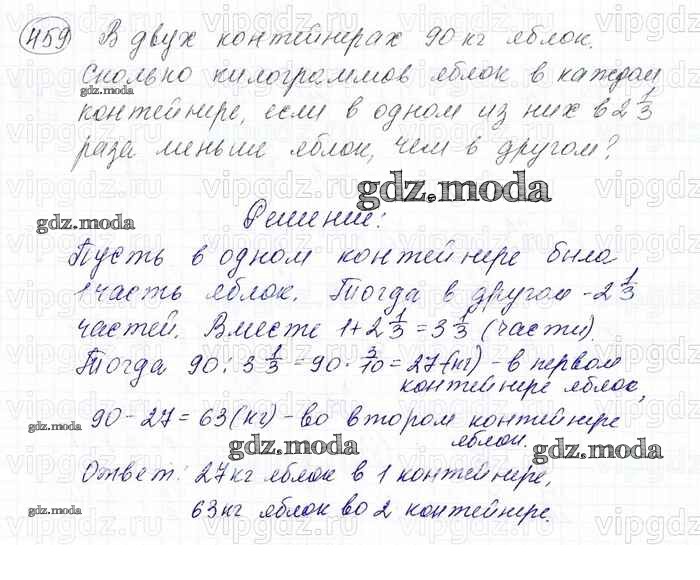 459 В двух контейнерах 90 кг яблок.
Сколько килограммов яблок в каждом
gdz.moda
контейнере, если в одном из них в 2 1/3
раза меньше яблок, чем в другом?
gdz.moda
gdz.moda
Решение:
Пусть в одном контейнере была
1 часть яблок. Тогда в другом - 2 1/3
частей. Вместе 1 + 2 1/3 = 3 1/3 (части).
Тогда 90 : 3 1/3 = 90 · 3/10 = 27 (кг) - в первом
контейнере яблок,
90 - 27 = 63 (кг) - во втором контейнере
яблок.
gdz.moda
gdz.moda
gdz.moda
Ответ: 27 кг яблок в 1 контейнере,
63 кг яблок во 2 контейнере.
gdz.moda